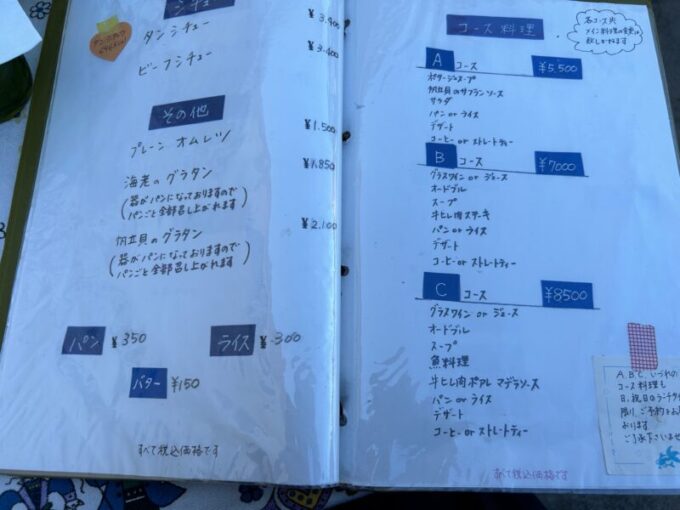 シチュー
タンシチュー ¥3,900
ビーフシチュー ¥3,400
その他
プレーン オムレツ ¥1,500
海老のグラタン ¥1,850
(器がパンになっておりますので
パンごと全部召し上がれます)
帆立貝のグラタン ¥2,100
(器がパンになっておりますので
パンごと全部召し上がれます)
パン ¥350
ライス ¥300
バター ¥150
すべて税込価格です
コース料理
各コース共
メイン料理の変更は
致しかねます
A コース ¥5,500
ポタージュスープ
帆立貝のサフランソース
サラダ
パン or ライス
デザート
コーヒー or ストレートティー
B コース ¥7000
グラスワイン or ジュース
オードブル
スープ
牛ヒレ肉ステーキ
パン or ライス
デザート
コーヒー or ストレートティー
C コース ¥8500
グラスワイン or ジュース
オードブル
スープ
魚料理
牛ヒレ肉ポワレ マデラソース
パン or ライス
デザート
コーヒー or ストレートティー
すべて税込価格です
A.B.C. いづれの
コース料理も
日.祝日のランチタイ
限り、ご予約を
おります
ご了承くださいませ